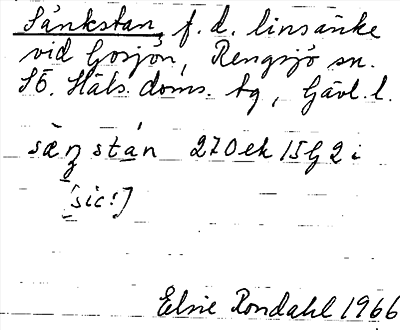 Sänkstan, f. d. linsänke
vid Gosjön, Rengsjö sn.
SÖ. Häls. doms. tg, Gävl. l.
sæŋstán 270 ek 15G2i
[sic!]
Elsie Rondahl 1966